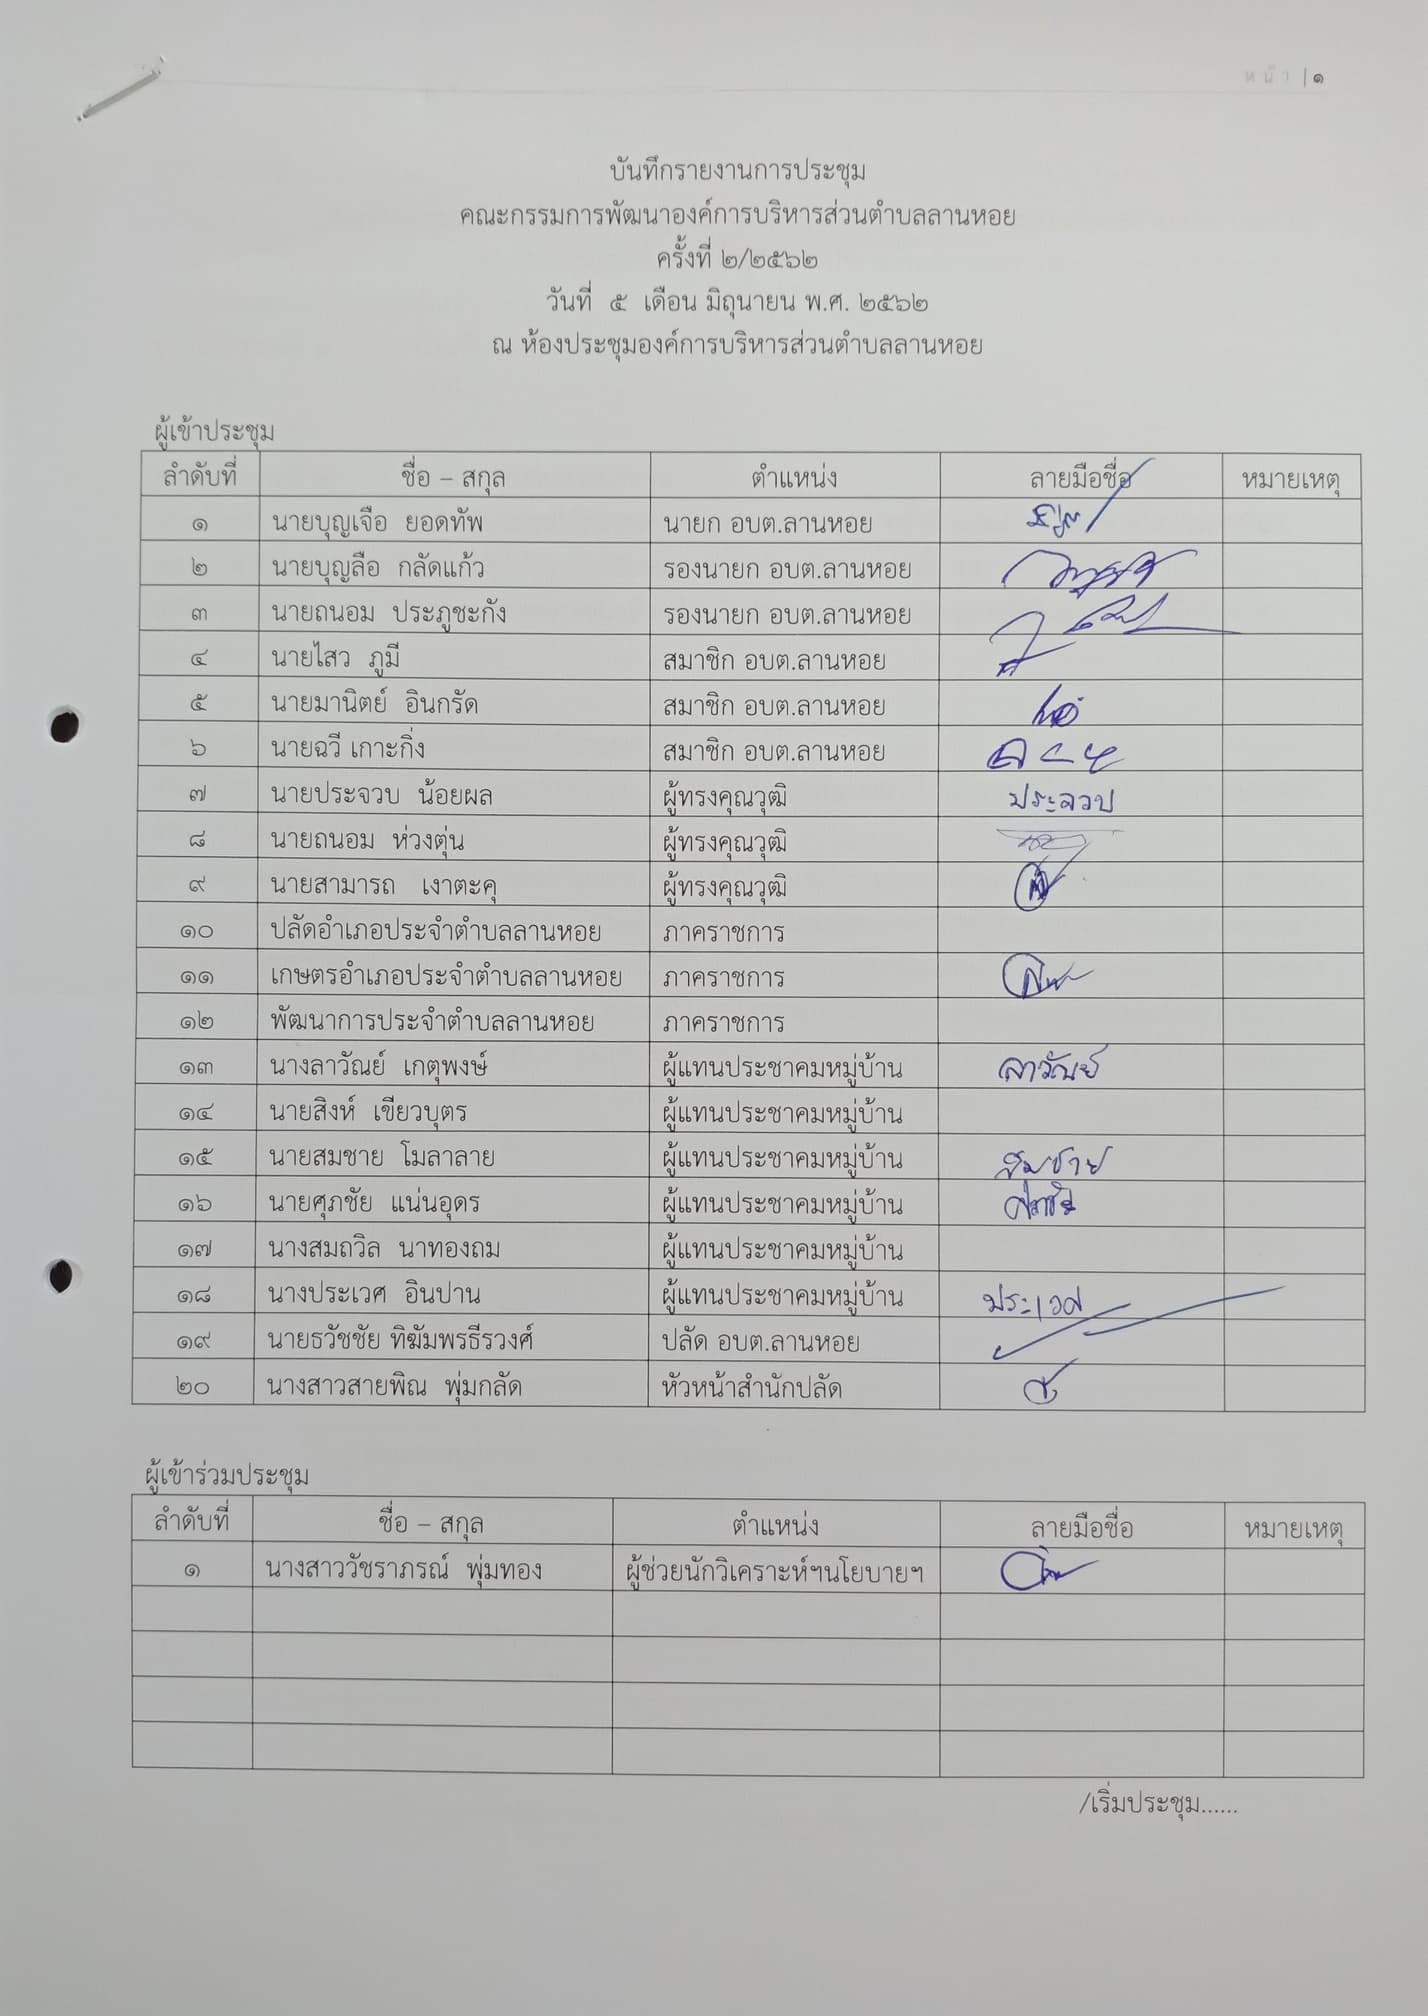 หน้า | ๑
บันทึกรายงานการประชุม
คณะกรรมการพัฒนาองค์การบริหารส่วนตำบลลานหอย
ครั้งที่ ๒/๒๕๖๒
วันที่ ๕ เดือน มิถุนายน พ.ศ. ๒๕๖๒
ณ ห้องประชุมองค์การบริหารส่วนตำบลลานหอย
ผู้เข้าประชุม
ลำดับที่ ชื่อ – สกุล ตำแหน่ง ลายมือชื่อ หมายเหตุ
๑ นายบุญเจือ ยอดทัพ นายก อบต.ลานหอย
๒ นายบุญลือ กลัดแก้ว รองนายก อบต.ลานหอย
๓ นายถนอม ประภูชะกัง รองนายก อบต.ลานหอย
๔ นายไสว ภูมี สมาชิก อบต.ลานหอย
๕ นายมานิตย์ อินกรัด สมาชิก อบต.ลานหอย
๖ นายฉวี เกาะกิ่ง สมาชิก อบต.ลานหอย
๗ นายประจวบ น้อยผล ผู้ทรงคุณวุฒิ ประจวบ
๘ นายถนอม ห่วงตุ่น ผู้ทรงคุณวุฒิ
๙ นายสามารถ เงาตะคุ ผู้ทรงคุณวุฒิ
๑๐ ปลัดอำเภอประจำตำบลลานหอย ภาคราชการ
๑๑ เกษตรอำเภอประจำตำบลลานหอย ภาคราชการ
๑๒ พัฒนาการประจำตำบลลานหอย ภาคราชการ
๑๓ นางลาวัณย์ เกตุพงษ์ ผู้แทนประชาคมหมู่บ้าน ลาวัณย์
๑๔ นายสิงห์ เขียวบุตร ผู้แทนประชาคมหมู่บ้าน
๑๕ นายสมชาย โมลาลาย ผู้แทนประชาคมหมู่บ้าน สมชาย
๑๖ นายศุภชัย แน่นอุดร ผู้แทนประชาคมหมู่บ้าน ศุภชัย
๑๗ นางสมถวิล นาทองถม ผู้แทนประชาคมหมู่บ้าน
๑๘ นางประเวศ อินปาน ผู้แทนประชาคมหมู่บ้าน ประเวศ
๑๙ นายธวัชชัย ทิฆัมพรธีรวงศ์ ปลัด อบต.ลานหอย
๒๐ นางสาวสายพิณ พุ่มกลัด หัวหน้าสำนักปลัด
ผู้เข้าร่วมประชุม
ลำดับที่ ชื่อ – สกุล ตำแหน่ง ลายมือชื่อ หมายเหตุ
๑ นางสาววัชราภรณ์ พุ่มทอง ผู้ช่วยนักวิเคราะห์ฯนโยบายฯ
/เริ่มประชุม......